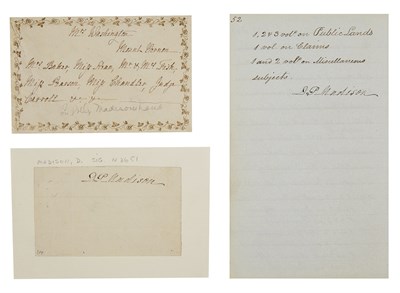 Mrs Washington
Mount Vernon
Mrs Baker, Miss Mr & Mrs Fisk,
Miss Pearson, Miss Chandler, Judge
Garrett
Dolley Madison's hand
Madison, D.
D. P. Madison
52
1, 2 & 3 vols on Public Lands
1 vol on Claims
1 and 2 vols on Miscellaneous
subjects.
D. P. Madison